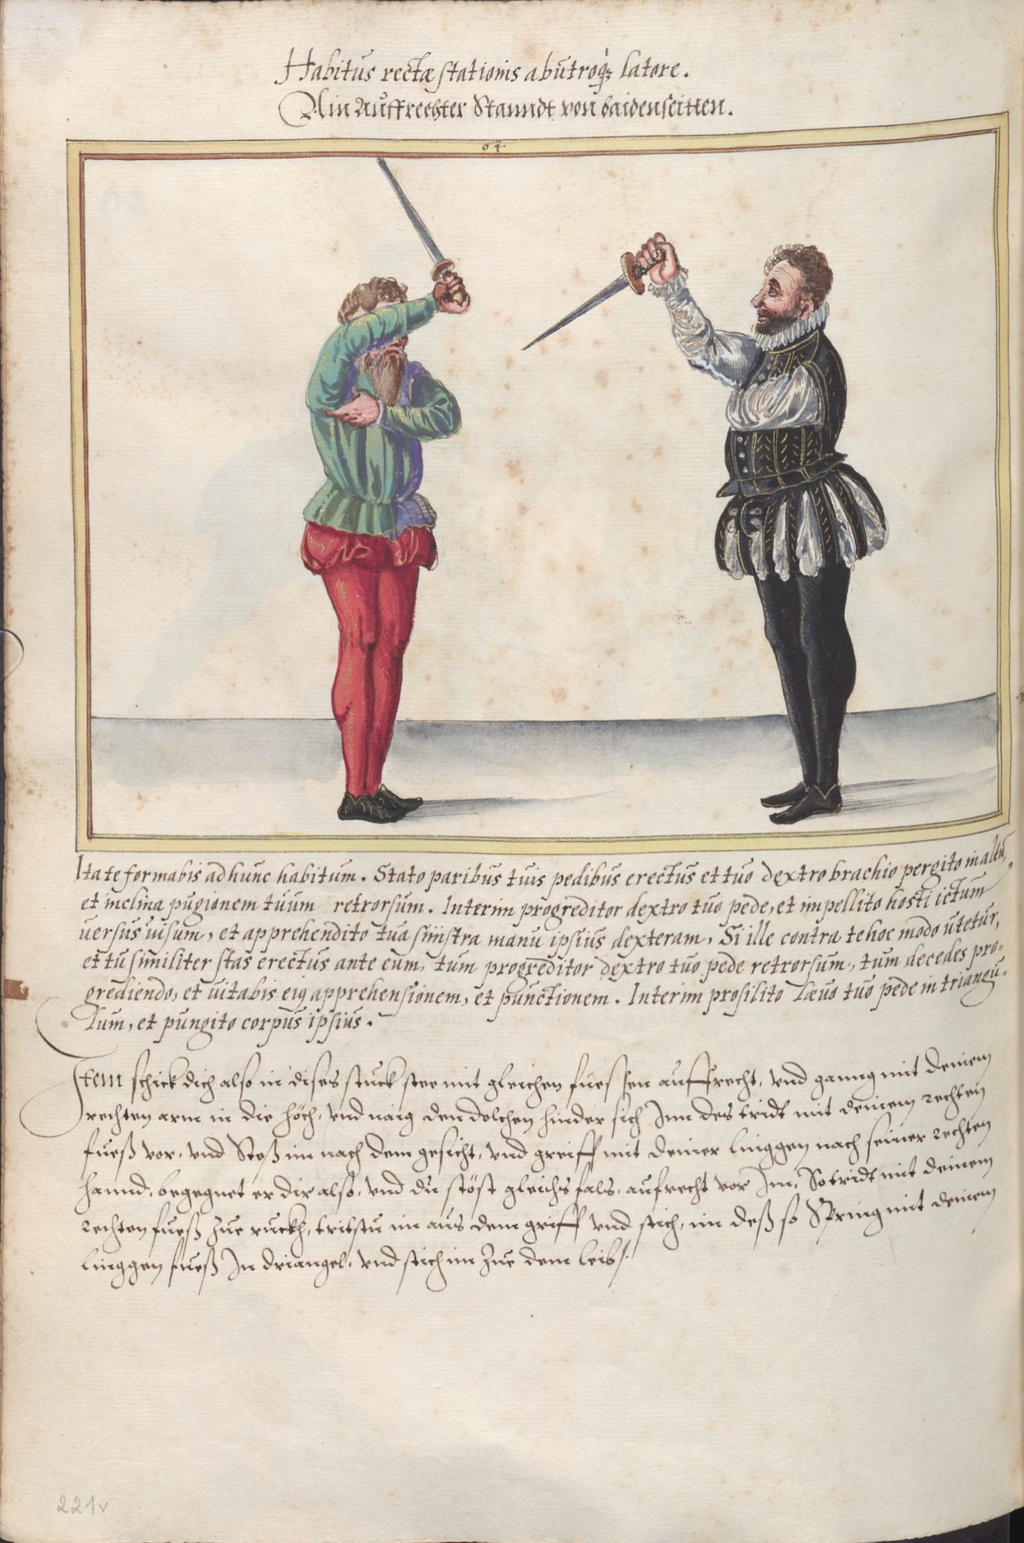 Habitus rectæ stationis ab utroq; latere.
Ain Auffrechter Stanndt von baiden seitten.
Ita te formabis ad hunc habitum. Stato paribus tuis pedibus erectus et tuo dextro brachio pergito in altū,
et inclina pugionem tuum retrorsum. Interim progreditor dextro tuo pede, et impellito hosti ictum
uersus uisum, et apprehendito tua sinistra manu ipsius dexteram, Si ille contra te hoc modo utetur,
et tu similiter stas erectus ante eum, tum progreditor dextro tuo pede retrorsum, tum decedes pro-
grediendo, et uitabis eiꝯ apprehensionem, et punctionem. Interim prosilito Læuo tuo pede in triangu-
lum, et pungito corpus ipsius.
Item schick dich also in dises stuck stee mit gleichen fuessen auffrecht, vnd ganng mit deinem
rechten arm in die höch, vnd naig den dolchen hinder sich Inn des tridt mit deinem rechten
fueß vor, vnd Stoß im nach dem gesicht, vnd greiff mit deiner linggen nach seiner rechten
hannd, begegnet er dir also, vnd du stost gleichs fals, aufrecht vor Im, So tridt mit deinem
rechten fueß zue ruckh, tritstu im aus dem griff vnd stich, im deß so Spring mit deinem
linggen fueß In driangel, vnd stich im zue dem leib.
221v